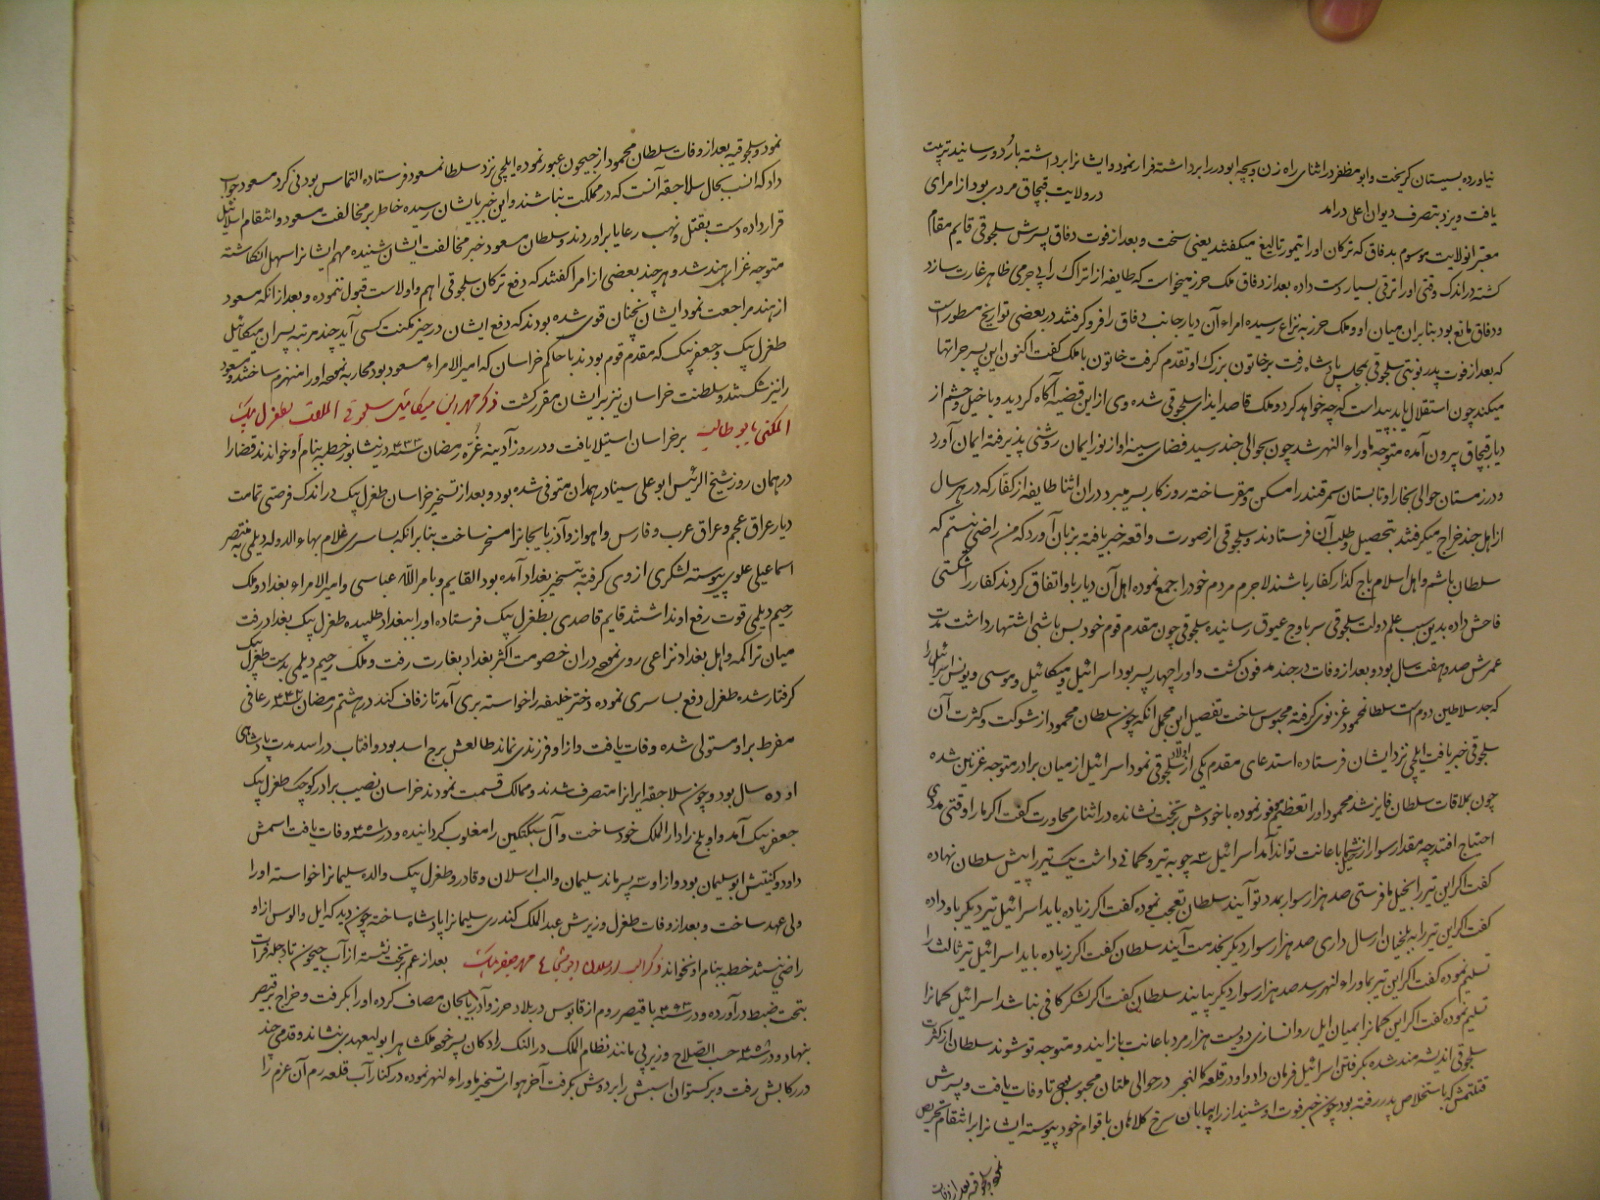 نیاورده بسیستان گریخت و ابو مظفر در اثنای راه زن و بچه ابو در را برداشته فرار نمود و ایشانرا برداشته باردو رسانید تربیت
یافت و یزد بتصرف دیوان اعلی درامد در ولایت قبچاق مردی بود از امرای
معتبر انولایت موسوم بدقاق که ترکان او را تیمور تالیغ میکفتند یعنی سخت و بعد از فوت دقاق پسرش سلجوقی قایم مقام
کشته در اندک وقتی او را ترقی بسیار دست داده بعد از دقاق ملک خرز میخواست که طایفه از اتراک را بی جرمی ظاهر غارت سازد
و دقاق مانع بود بنابران میان او و ملک خرز به نزاع رسیده امراء آن دیار جانب دقاق را فرو کرفتند در بعضی تواریخ مسطورست
که بعد از فوت پدر نوبتی سلجوقی بمجلس پادشاه رفت بر خاتون بزرک او تقدم کرفت خاتون با ملک کفت اکنون این پسر جراتها
میکند چون استقلال یابد پیداست که چه خواهد کرد و ملک قاصد ایذای سلجوقی شده وی از این قضیه آکاه کردید و با خیل و حشم از
دیار قبچاق بیرون آمده متوجه ماوراء النهر شد چون بحوالی جند رسید فضای سینه او از نور ایمان روشنی پذیرفته ایمان آورد
و در زمستان حوالی بخارا و تابستان سمرقند را مسکن و مقر ساخته روزکار بسر میبرد دران اثنا طایفه از کفار که در هر سال
از اهل جند خراج میکرفتند بتحصیل و طلب آن فرستادند و سلجوقی از صورت واقعه خبر یافته بزبان آورد که من راضی نیستم که
سلطان باشم و اهل اسلام باج کذار کفار باشند لاجرم مردم خود را جمع نموده اهل آن دیار با و اتفاق کردند کفار را شکستی
فاحش داده بدین سبب علم دولت سلجوقی سر باوج عیوق رسانیده سلجوقی چون مقدم قوم خود بس باشی اشتهار داشت مدت
عمرش صد و هفت سال بود و بعد از وفات در جند مدفون کشت و او را چهار پسر بود اسرائیل و میکائیل و موسی و یونس اسرائیل را
که جد سلاطین دوم است سلطان محمود غزنوی کرفته محبوس ساخت تفصیل این مجمل انکه چون سلطان محمود از شوکت و کثرت آن
سلجوقی خبر یافت ایلچی نزد ایشان فرستاده استدعای مقدم یکی از اولاد سلجوقی نمود اسرائیل از میان برادر متوجه غزنین شده
چون بملاقات سلطان فایز شد محمود او را تعظیم نموده با خودش بر تخت نشانده در اثنای محاورت کفت اکر ما را وقتی مددی
احتیاج افتد چه مقدار سوار از شما باعانت تواند آمد اسرائیل سه چوبه تیر و کمانی داشت یک تیر را پیش سلطان نهاده
کفت اکر این تیر را بخیل ما فرستی صد هزار سوار بمدد تو آیند سلطان تعجب نموده کفت اکر زیاده باید اسرائیل تیر دیکر باو داده
کفت اکر این تیر را به بلخیان ارسال داری صد هزار سوار دیکر بخدمت آیند سلطان کفت اکر زیاده باید اسرائیل تیر ثالث را
تسلیم نموده کفت اکر این تیر بماوراء النهر رسد صد هزار سوار دیکر بیایند سلطان کفت اکر لشکر کافی نباشد اسرائیل کمانرا
تسلیم نموده کفت اکر این کمانرا بمیان ایل روانسازی دویست هزار مرد باعانت باز ایند و متوجه تو شوند سلطان از کثرت
سلجوقی اندیشه مند شده بکرفتن اسرائیل فرمان داد و او در قلعه کالنجر در حوالی ملتان محبوس تا وفات یافت و پسرش
قتلتمش که باستخلاص پدر رفته بود چون خبر فوت او شنید از راه بیابان سرخ کلاهان باقوام خود پیوسته ایشانرا بر انتقام تحریص
نمود و سلجوقیه بعد از وفات
نمود و سلجوقیه بعد از وفات سلطان محمود از جیحون عبور نموده ایلچی نزد سلطان مسعود فرستاده التماس بودنی کرد مسعود جواب
داد که انسب بحال سلاجقه آنست که در مملکت نباشند و این خبر بایشان رسیده خاطر بر مخالفت مسعود و انتقام اسرائیل
قرار داده دست بقتل و نهب رعایا براوردند و سلطان مسعود خبر مخالفت ایشان شنیده مهم ایشانرا سهل انکاشته
متوجه غزای هند شد و هر چند بعضی از امرا کفتند که دفع ترکان سلجوقی اهم و اولاست قبول ننموده و بعد از انکه مسعود
از هند مراجعت نمود ایشان چنان قوی شده بودند که دفع ایشان در حیز مکنت کسی آید چند مرتبه پسران میکائیل
طغرل بیک و جعفر بیک که مقدم قوم بودند با حاکم خراسان که امیر الامراء مسعود بود محاربه نموده او را منهزم ساختند و مسعود
را نیز شکستند و سلطنت خراسان نیز بر ایشان مقرر کشت ذکر محمد ابن میکائیل سلجوقی الملقب بطغرل بیک
المکنی بابو طالب بر خراسان استیلا یافت و در روز آدینه غره رمضان ۴۳۳ در نیشابور خطبه بنام او خواندند قضا را
در همان روز شیخ الرئیس ابو علی سینا در همدان متوفی شده بود و بعد از تسخیر خراسان طغرل بیک در اندک فرصتی تمامت
دیار عراق عجم و عراق عرب و فارس و اهواز و آذربایجانرا مسخر ساخت بنابر انکه بساسری غلام بهاء الدوله دیلمی به منتصر
اسماعیلی علوی پیوسته لشکری از وی کرفته به تسخیر بغداد آمده بود القایم بامر الله عباسی و امیر الامراء بغداد و ملک
رحیم دیلمی قوت رفع او نداشتند قایم قاصدی بطغرل بیک فرستاده او را ببغداد طلبیده طغرل بیک بغداد رفت
میان تراکمه و اهل بغداد نزاعی روی نموده دران خصومت اکثر بغداد بغارت رفت و ملک رحیم دیلمی بدست طغرل بیک
کرفتار شده طغرل دفع بساسری نموده دختر خلیفه را خواسته بری آمد تا زفاف کند در هشتم رمضان رعافی
مفرط بر او مستولی شده وفات یافت و از او فرزندی نماند طالعش برج اسد بود و افتاب در اسد مدت پادشاهی
او ده سال بود و چون سلاجقه ایرانرا متصرف شدند و ممالک قسمت نمودند خراسان نصیب برادر کوچک طغرل بیک
جعفر بیک آمد و او بلخ را دار الملک خود ساخت و آل سبکتکین را مغلوب کردانیده و در ۴۵۱ وفات یافت اسمش
داود و کنیتش ابو سلیمان بود و از او سه پسر ماند سلیمان و الب ارسلان و قادر و طغرل بیک والده سلیمانرا خواسته او را
ولی عهد ساخت و بعد از وفات طغرل وزیرش عبد الملک کندری سلیمانرا پادشاه ساخته چون دید که ایل و الوس از او
راضی نیستند خطبه بنام او نخواند ذکر الب ارسلان ابو شجاع محمد جعفر بیک بعد از عم بر تخت نشسته از آب جیحون تا دجله فرات
بتحت ضبط درآورده و در با قیصر روم از قابوس در بلاد خرز و آذربایجان مصاف کرده او را بکرفت و خراج بر قیصر
بنهاد و در حسب الصلاح وزیر بی مانند نظام الملک در النک رادکان پسر خود ملک شاه را بولیعهدی نشاند و قدمی چند
در رکابش رفت و برکستوان اسبش را بر دوش بکرفت آخر هوای تسخیر ماوراء النهر نموده در کنار آب قلعه رم آن عزم را